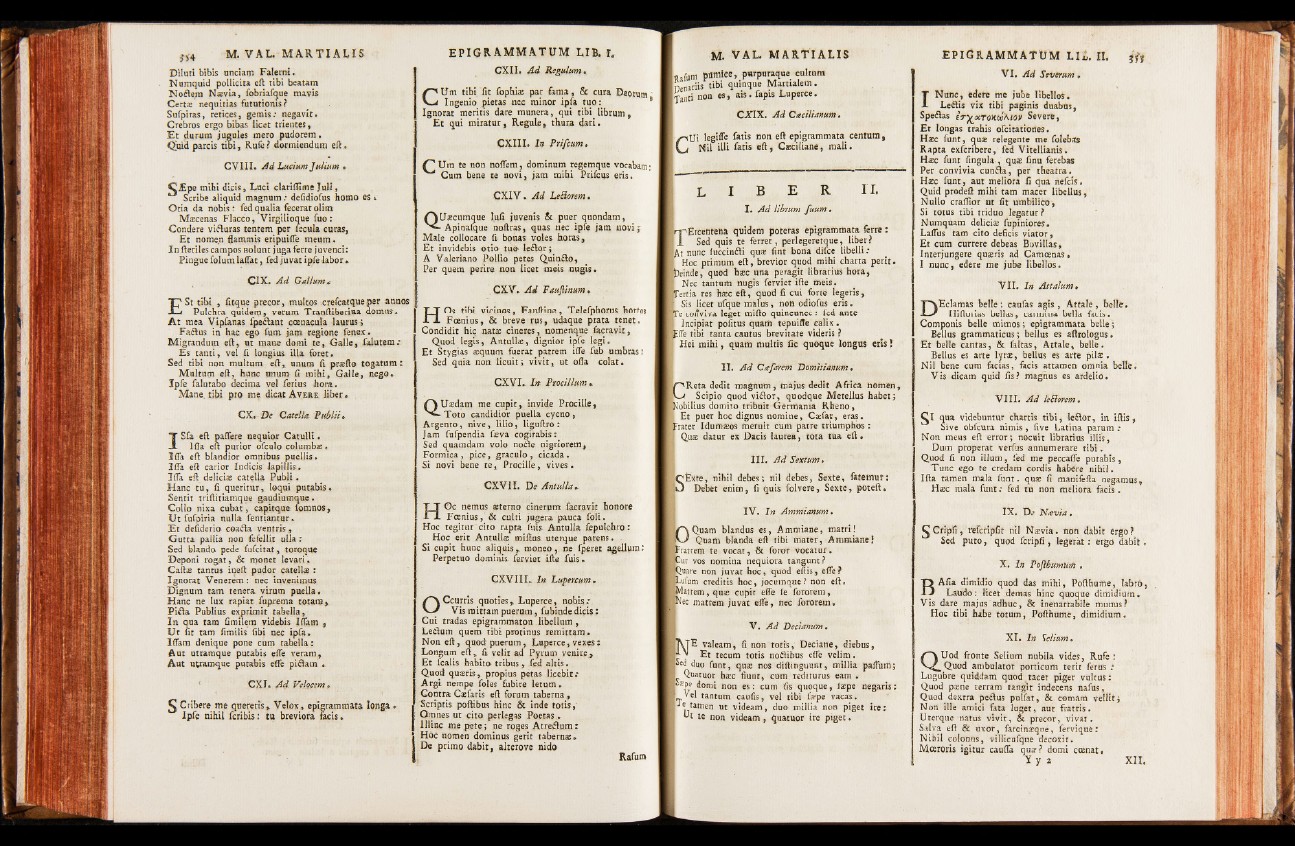 354 M. VAL. MARTIALIS
Diluti bibis unciam Falerni.
Numquid pollicita eſt tibi beatam
Noctem Nævia, ſobriaſque mavis
Certæ nequitias fututionis?
Suſpiras, retices, gemis: negavit.
Crebros ergo bibas licet trientes,
Et durum jugules mero pudorem.
Quid parcis tibi, Rufe? dormiendum eſt.
CVIII. Ad Lucium Julium.
SÆpe mihi dicis, Luci clariſſime Juli,
Scribe aliquid magnum: deſidioſus homo es.
Otia da nobis: ſed qualia fecerat olim
Mæcenas Flacco, Virgilioque ſuo:
Condere victuras tentem per ſecula curas,
Et nomen flammis eripuiſſe meum.
In ſteriles campos nolunt juga ferre juvenci:
Pingue ſolum laſſat, ſed juvat ipſe labor.
CIX. Ad Gallum.
ESt tibi, ſitque precor, multos creſcatque per annos
Pulchra quidem, verum Tranſtiberina domus.
At mea Vipſanas ſpectant cœnacula laurus;
Factus in hac ego ſum jam regione ſenex.
Migrandum eſt, ut mane domi te, Galle, ſalutem:
Es tanti, vel ſi longius illa foret.
Sed tibi non multum eſt, unum ſi præſto togatum:
Multum eſt, hunc unum ſi mihi, Galle, nego.
Ipſe ſalutabo decima vel ſerius hora.
Mane tibi pro me dicat AVERE liber.
CX. De Catella Publii.
ISſa eſt paſſere nequior Catulli.
Iſſa eſt purior oſculo columbæ.
Iſſa eſt blandior omnibus puellis.
Iſſa eſt carior Indicis lapillis.
Iſſa eſt deliciæ catella Publi.
Hanc tu, ſi queritur, loqui putabis.
Sentit triſtitiamque gaudiumque.
Collo nixa cubat, capitque ſomnos,
Ut ſuſpiria nulla ſentiantur.
Et deſiderio coacta ventris,
Gutta pallia non fefellit ulla:
Sed blando pede ſuſcitat, toroque
Deponi rogat, & monet levari.
Caſtæ tantus ineſt pudor catellæ:
Ignorat Venerem: nec invenimus
Dignum tam tenera virum puella.
Hanc ne lux rapiat ſuprema totam,
Picta Publius exprimit tabella,
In qua tam ſimilem videbis Iſſam,
Ut ſit tam ſimilis ſibi nec ipſa.
Iſſam denique pone cum tabella:
Aut utramque putabis eſſe veram,
Aut utramque putabis eſſe pictam.
CXI. Ad Velocem.
SCribere me quereris, Velox, epigrammata longa.
Ipſe nihil ſcribis: tu breviora facis.
EPIGRAMMATUM LIB. I.
CXII. Ad Regulum.
CUm tibi ſit ſophiæ par fama, & cura Deorum,
Ingenio pietas nec minor ipſa tuo:
Ignorat meritis dare munera, qui tibi librum,
Et qui miratur, Regule, thura dari.
CXIII. In Priſcum.
CUm te non noſſem, dominum regemque vocabam:
Cum bene te novi, jam mihi Priſcus eris.
CXIV. Ad Lectorem.
QUæcumque luſi juvenis & puer quondam,
Apinaſque noſtras, quas nec ipſe jam novi;
Male collocare ſi bonas voles horas,
Et invidebis otio tuo lector;
A Valeriano Pollio petes Quincto,
Per quem perire non licet meis nugis.
CXV. Ad Fauſtinum.
HOs tibi vicinos, Fauſtine, Teleſphorus hortos
Fœnius, & breve rus, udaque prata tenet.
Condidit hic natæ cineres, nomenque ſacravit,
Quod legis, Antullæ, dignior ipſe legi.
Et Stygias æquum fuerat patrem iſſe ſub umbras:
Sed quia non licuit; vivit, ut oſſa colat.
CXVI. In Procillum.
QUædam me cupit, invide Procille,
Toto candidior puella cycno,
Argento, nive, lilio, liguſtro:
Jam ſuſpendia ſæva cogitabis:
Sed quamdam volo nocte nigriorem,
Formica, pice, graculo, cicada.
Si novi bene te, Procille, vives.
CXVII. De Antulla.
HOc nemus æterno cinerum ſacravit honore
Fœnius, & culti jugera pauca ſoli.
Hoc tegitur cito rapta ſuis Antulla ſepulchro:
Hoc erit Antullæ miſtus uterque parens.
Si cupit hunc aliquis, moneo, ne ſperet agellum:
Perpetuo dominis ſerviet iſte ſuis.
CXVIII. In Lupercum.
OCcurris quoties, Luperce, nobis:
Vis mittam puerum, ſubinde dicis:
Cui tradas epigrammaton libellum,
Lectum quem tibi protinus remittam.
Non eſt, quod puerum, Luperce, vexes:
Longum eſt, ſi velit ad Pyrum venire,
Et ſcalis habito tribus, ſed altis.
Quod quæris, propius petas licebit:
Argi nempe ſoles ſubire letum.
Contra Cæſaris eſt forum taberna,
Scriptis poſtibus hinc & inde totis,
Omnes ut cito perlegas Poetas.
Illinc me pete; ne roges Atrectum:
Hoc nomen dominus gerit tabernæ.
De primo dabit, alterove nido
Raſum
M. VAL. MARTIALIS
Raſum pumice, purpuraque cultum
Denariis tibi quinque Martialem.
Tanti non es, ais. ſapis Luperce.
CXIX. Ad Cæcilianum.
CUi legiſſe ſatis non eſt epigrammata centum,
Nil illi ſatis eſt, Cæciliane, mali.
LIBER II.
I. Ad librum ſuum.
TErcentena quidem poteras epigrammata ferre:
Sed quis te ferret, perlegeretque, liber?
At nunc ſuccincti quæ ſint bona diſce libelli:
Hoc primum eſt, brevior quod mihi charta perit.
Deinde, quod hæc una peragit librarius hora,
Nec tantum nugis ſerviet iſte meis.
Tertia res hæc eſt, quod ſi cui forte legeris,
Sis licet uſque malus, non odioſus eris.
Te conviva leget miſto quincunce: ſed ante
Incipiat poſitus quam tepuiſſe calix.
Eſſe tibi tanta cautus brevitate videris?
Hei mihi, quam multis ſic quoque longus eris!
II. Ad Cæſarem Domitianum.
CReta dedit magnum, majus dedit Africa nomen,
Scipio quod victor, quodque Metellus habet;
Nobilius domito tribuit Germania Rheno,
Et puer hoc dignus nomine, Cæſar, eras.
Frater Idumæos meruit cum patre triumphos:
Quæ datur ex Dacis laurea, tota tua eſt.
III. Ad Sextum.
SExte, nihil debes; nil debes, Sexte, fatemur:
Debet enim, ſi quis ſolvere, Sexte, poteſt.
IV. In Ammianum.
OQuam blandus es, Ammiane, matri!
Quam blanda eſt tibi mater, Ammiane!
Fratrem te vocat, & ſoror vocatur.
Cur vos nomina nequiora tangunt?
Quare non juvat hoc, quod eſtis, eſſe?
Luſum creditis hoc, jocumque? non eſt.
Matrem, quæ cupit eſſe ſe ſororem,
Nec matrem juvat eſſe, nec ſororem.
V. Ad Decianum.
NE valeam, ſi non totis, Deciane, diebus,
Et tecum totis noctibus eſſe velim.
Sed duo ſunt, quæ nos diſtinguunt, millia paſſum;
Quatuor hæc fiunt, cum rediturus eam.
Sæpe domi non es: cum ſis quoque, ſæpe negaris:
Vel tantum cauſis, vel tibi ſæpe vacas.
Te tamen ut videam, duo millia non piget ire:
Ut te non videam, quatuor ire piget.
EPIGRAMMATUM LIB. II. 355
VI. Ad Severum.
I Nunc, edere me jube libellos.
Lectis vix tibi paginis duabus,
Spectas ἐσχατοκώλιον Severe,
Et longas trahis oſcitationes.
Hæc ſunt, quæ relegente me ſolebas
Rapta exſcribere, ſed Vitellianis.
Hæc ſunt ſingula, quæ ſinu ferebas
Per convivia cuncta, per theatra.
Hæc ſunt, aut meliora ſi qua neſcis.
Quid prodeſt mihi tam macer libellus,
Nullo craſſior ut ſit umbilico,
Si totus tibi triduo legatur?
Numquam deliciæ ſupiniores.
Laſſus tam cito deficis viator,
Et cum currere debeas Bovillas,
Interjungere quæris ad Camœnas.
I nunc, edere me jube libellos.
VII. In Attalum.
DEclamas belle: cauſas agis, Attale, belle.
Hiſtorias bellas, carmina bella facis.
Componis belle mimos; epigrammata belle;
Bellus grammaticus; bellus es aſtrologus.
Et belle cantas, & ſaltas, Attale, belle.
Bellus es arte lyræ, bellus es arte pilæ.
Nil bene cum facias, facis attamen omnia belle.
Vis dicam quid ſis? magnus es ardelio.
VIII. Ad lectorem.
SI qua videbuntur chartis tibi, lector, in iſtis,
Sive obſcura nimis, ſive Latina parum:
Non meus eſt error; nocuit librarius illis,
Dum properat verſus annumerare tibi.
Quod ſi non illum, ſed me peccaſſe putabis,
Tunc ego te credam cordis habere nihil.
Iſta tamen mala ſunt. quæ ſi manifeſta negamus,
Hæc mala ſunt: ſed tu non meliora facis.
IX. De Nævia.
SCripſi, reſcripſit nil Nævia. non dabit ergo?
Sed puto, quod ſcripſi, legerat: ergo dabit.
X. In Poſthumum.
BAſia dimidio quod das mihi, Poſthume, labro,
Laudo: licet demas hinc quoque dimidium.
Vis dare majus adhuc, & inenarrabile munus?
Hoc tibi habe totum, Poſthume, dimidium.
XI. In Selium.
QUod fronte Selium nubila vides, Rufe:
Quod ambulator porticum terit ſerus:
Lugubre quiddam quod tacet piger vultus:
Quod pæne terram tangit indecens naſus,
Quod dextra pectus pulſat, & comam vellit;
Non ille amici fata luget, aut fratris.
Uterque natus vivit, & precor, vivat.
Salva eſt & uxor, ſarcinæque, ſervique:
Nihil colonus, villicuſque decoxit.
Mœroris igitur cauſſa quæ? domi cœnat.
Yy 2 XII.